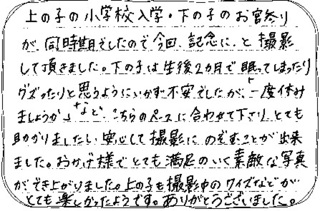 上の子の小学校入学・下の子のお宮参り
が、同時期でしたので今回、記念に、と撮影
して頂きました。下の子は生後2カ月で眠ってしまったり
グズったりと思うようにいかず不安でしたが、「一度休み
ましょうか」など、こちらのペースに合わせて下さり、とても
助かりましたし、安心して撮影にのぞむことが出来
ました。おかげ様でとても満足のいく素敵な写真
ができ上がりました。上の子も撮影中のクイズなどが
とても楽しかったようです。ありがとうございました。